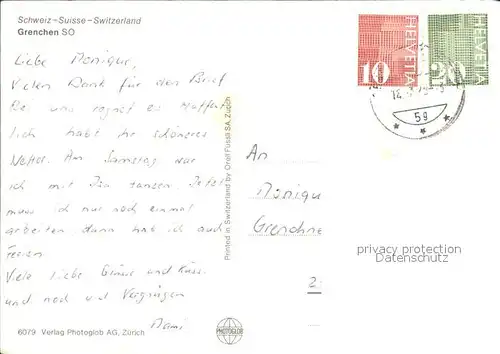 Schweiz-Suisse-Switzerland
Grenchen SO
Liebe Monique,
Vielen Dank für den Brief
Bei uns regnet es Hoffent
lich habt ihr schöneres
Wetter. Am Samstag war
ich mit Isa tanzen. Jetzt
muss ich nur noch einmal
arbeiten dann hab ich auch
Ferien
Viele liebe Grüsse und Küsse
und noch viel Vergnügen
Mami
6079 Verlag Photoglob AG, Zürich
Printed in Switzerland by Orell Füssli SA, Zürich
PHOTOGLOB
HELVETIA
10
HELVETIA
20
59
An
Monique
Grenchne
privacy protection
Datenschutz